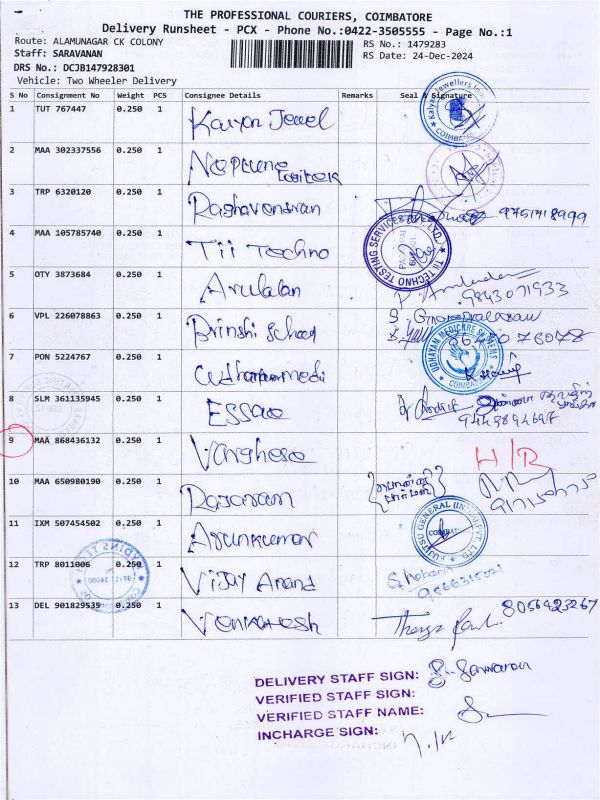 THE PROFESSIONAL COURIERS, COIMBATORE
Delivery Runsheet - PCX - Phone No.:0422-3505555 - Page No.:1
Route: ALAMUNAGAR CK COLONY
RS No.: 1479283
Staff: SARAVANAN
RS Date: 24-Dec-2024
DRS No.: DCJB147928301
Vehicle: Two Wheeler Delivery
S No Consignment No Weight PCS Consignee Details Remarks Seal & Signature
1 TUT 767447 0.250 1 Kalyan Jewel
2 MAA 302337556 0.250 1 Neptune
3 TRP 6320120 0.250 1 Raghavendran 9751718999
4 MAA 105785740 0.250 1 Tii Techno
TII TECHNO TESTING SERVICES PVT. LTD.
5 OTY 3873684 0.250 1 Arulalan
9843071933
6 VPL 226078863 0.250 1 Brinshi School
7 PON 5224767 0.250 1
UDHAYAM MEDICKRE SYSTEMS
COIMBATORE
8 SLM 361135945 0.250 1 ESSAE
9 MAA 868436132 0.250 1 Varghese H/R
10 MAA 650980190 0.250 1 Rajaram
11 IXM 507454502 0.250 1 Arunkumar
12 TRP 8011006 0.250 1 Vijay Anand
13 DEL 901829535 0.250 1 Venkatesh 8056423267
DELIVERY STAFF SIGN: S. Saravanan
VERIFIED STAFF SIGN:
VERIFIED STAFF NAME:
INCHARGE SIGN: